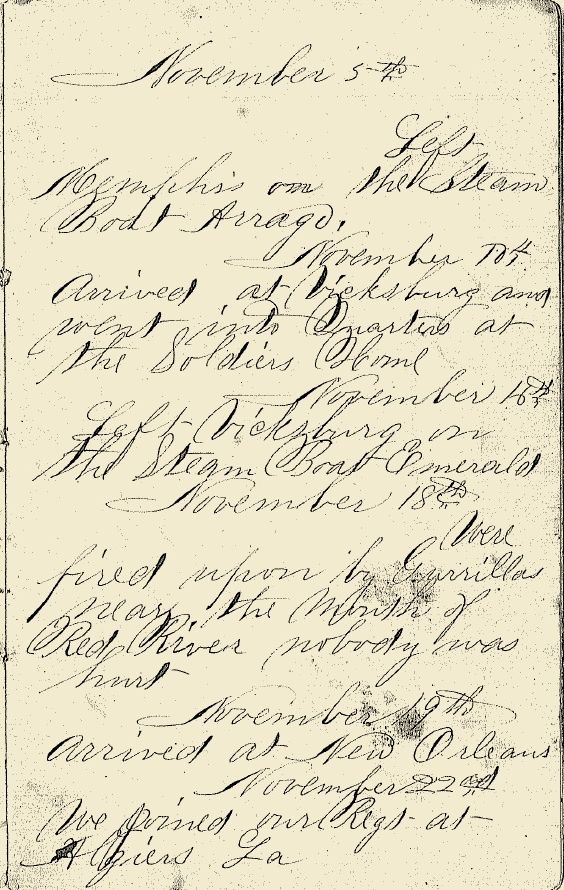 November 5th
Left
Memphis on the Steam
Boat Arrago.
November 10th
Arrived at Vicksburg and
went into Quarters at
the Soldiers Home
November 16th
Left Vicksburg on
the Steam Boat Emerald
November 18th
Were
fired upon by Gurrillas
near the Mouth of
Red River nobody was
hurt
November 19th
Arrived at New Orleans
November 22nd
We joined our Regt at
Algiers La